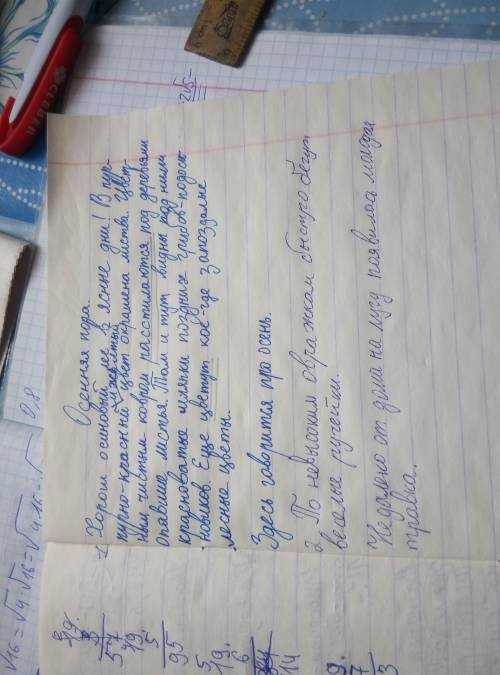 Осенняя пора.
1. Хорош осиновый лес в ясные дни! В пур-
пурно-красный и желтый цвет окрашена листва. Цвет-
ным чистым ковром расстилаются под деревьями
опавшие листья. Там и тут видны над ними
красноватые шляпки поздних грибов подоси-
новиков. Еще цветут кое-где запоздалые
лесные цветы.
Здесь говорится про осень.
2. По невысоким овражкам быстро бегут
веселые ручейки.
Недалеко от дома на лугу появилась молодая
травка.
√16 = √4·√16 = √4·16 = √
0,8
2√5
19.
3
57
19.
5
95
19.
6
14
9.
7
3
CELLER